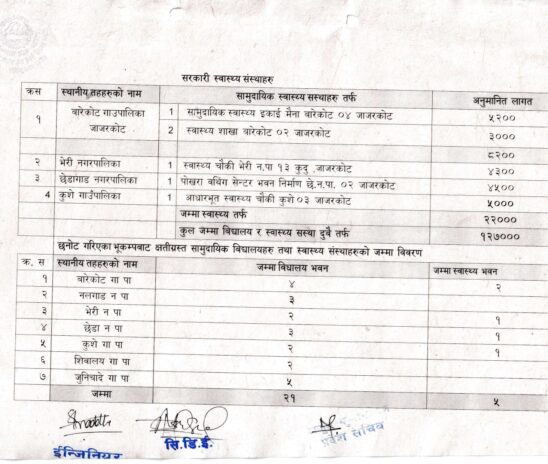 सरकारी स्वास्थ्य संस्थाहरु
क्रस स्थानीय तहहरुको नाम सामुदायिक स्वास्थ्य सस्थाहरु तर्फ अनुमानित लागत
१ बारेकोट गाउपालिका जाजरकोट 1 सामुदायिक स्वास्थ्य इकाई मैना बारेकोट ०४ जाजरकोट ५२००
2 स्वास्थ्य शाखा बारेकोट ०२ जाजरकोट ३०००
८२००
२ भेरी नगरपालिका 1 स्वास्थ्य चौकी भेरी न.पा १३ कुदु ,जाजरकोट ४३००
३ छेडागाड नगरपालिका 1 पोखरा वर्थिग सेन्टर भवन निर्माण छे.न.पा. ०२ जाजरकोट ४५००
4 कुशे गाउँपालिका 1 आधारभूत स्वास्थ्य चौकी कुशे ०३ जाजरकोट ५०००
जम्मा स्वास्थ्य तर्फ २२०००
कुल जम्मा विद्यालय र स्वास्थ्य सस्था दुबै तर्फ १२७०००
छनोट गरिएका भूकम्पबाट क्षतीग्रस्त सामुदायिक विद्यालयहरु तथा स्वास्थ्य संस्थाहरुको जम्मा बिबरण
क्र. स स्थानीय तहहरुको नाम जम्मा बिद्यालय भवन जम्मा स्वास्थ्य भवन
१ बारेकोट गा पा ४ २
२ नलगाड न पा ३
३ भेरी न पा २ १
४ छेडा न पा ३ १
५ कुशे गा पा २ १
६ शिवालय गा पा २
७ जुनिचादे गा पा ५
जम्मा २१ ५
ईन्जिनियर
सि.डि.ई.
प्रदेश सचिव